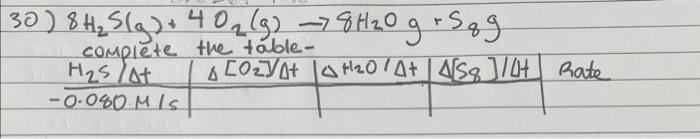 30) 8H₂S(g) + 4O₂(g) → 8H2O g + S₈g
complete the table-
H₂S/Δt | Δ[O₂]/Δt | ΔH2O/Δt | Δ[S₈]/Δt | Rate
-0.080 M/s